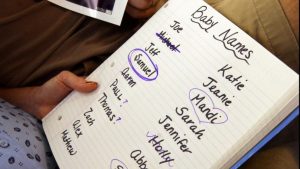 Baby Names
Joe
Jeff
Samuel
Paul?
Thomas?
Zach
Alex
Mathew
Katie
Jeanie
Mandi
Sarah
Jennifer
Holly